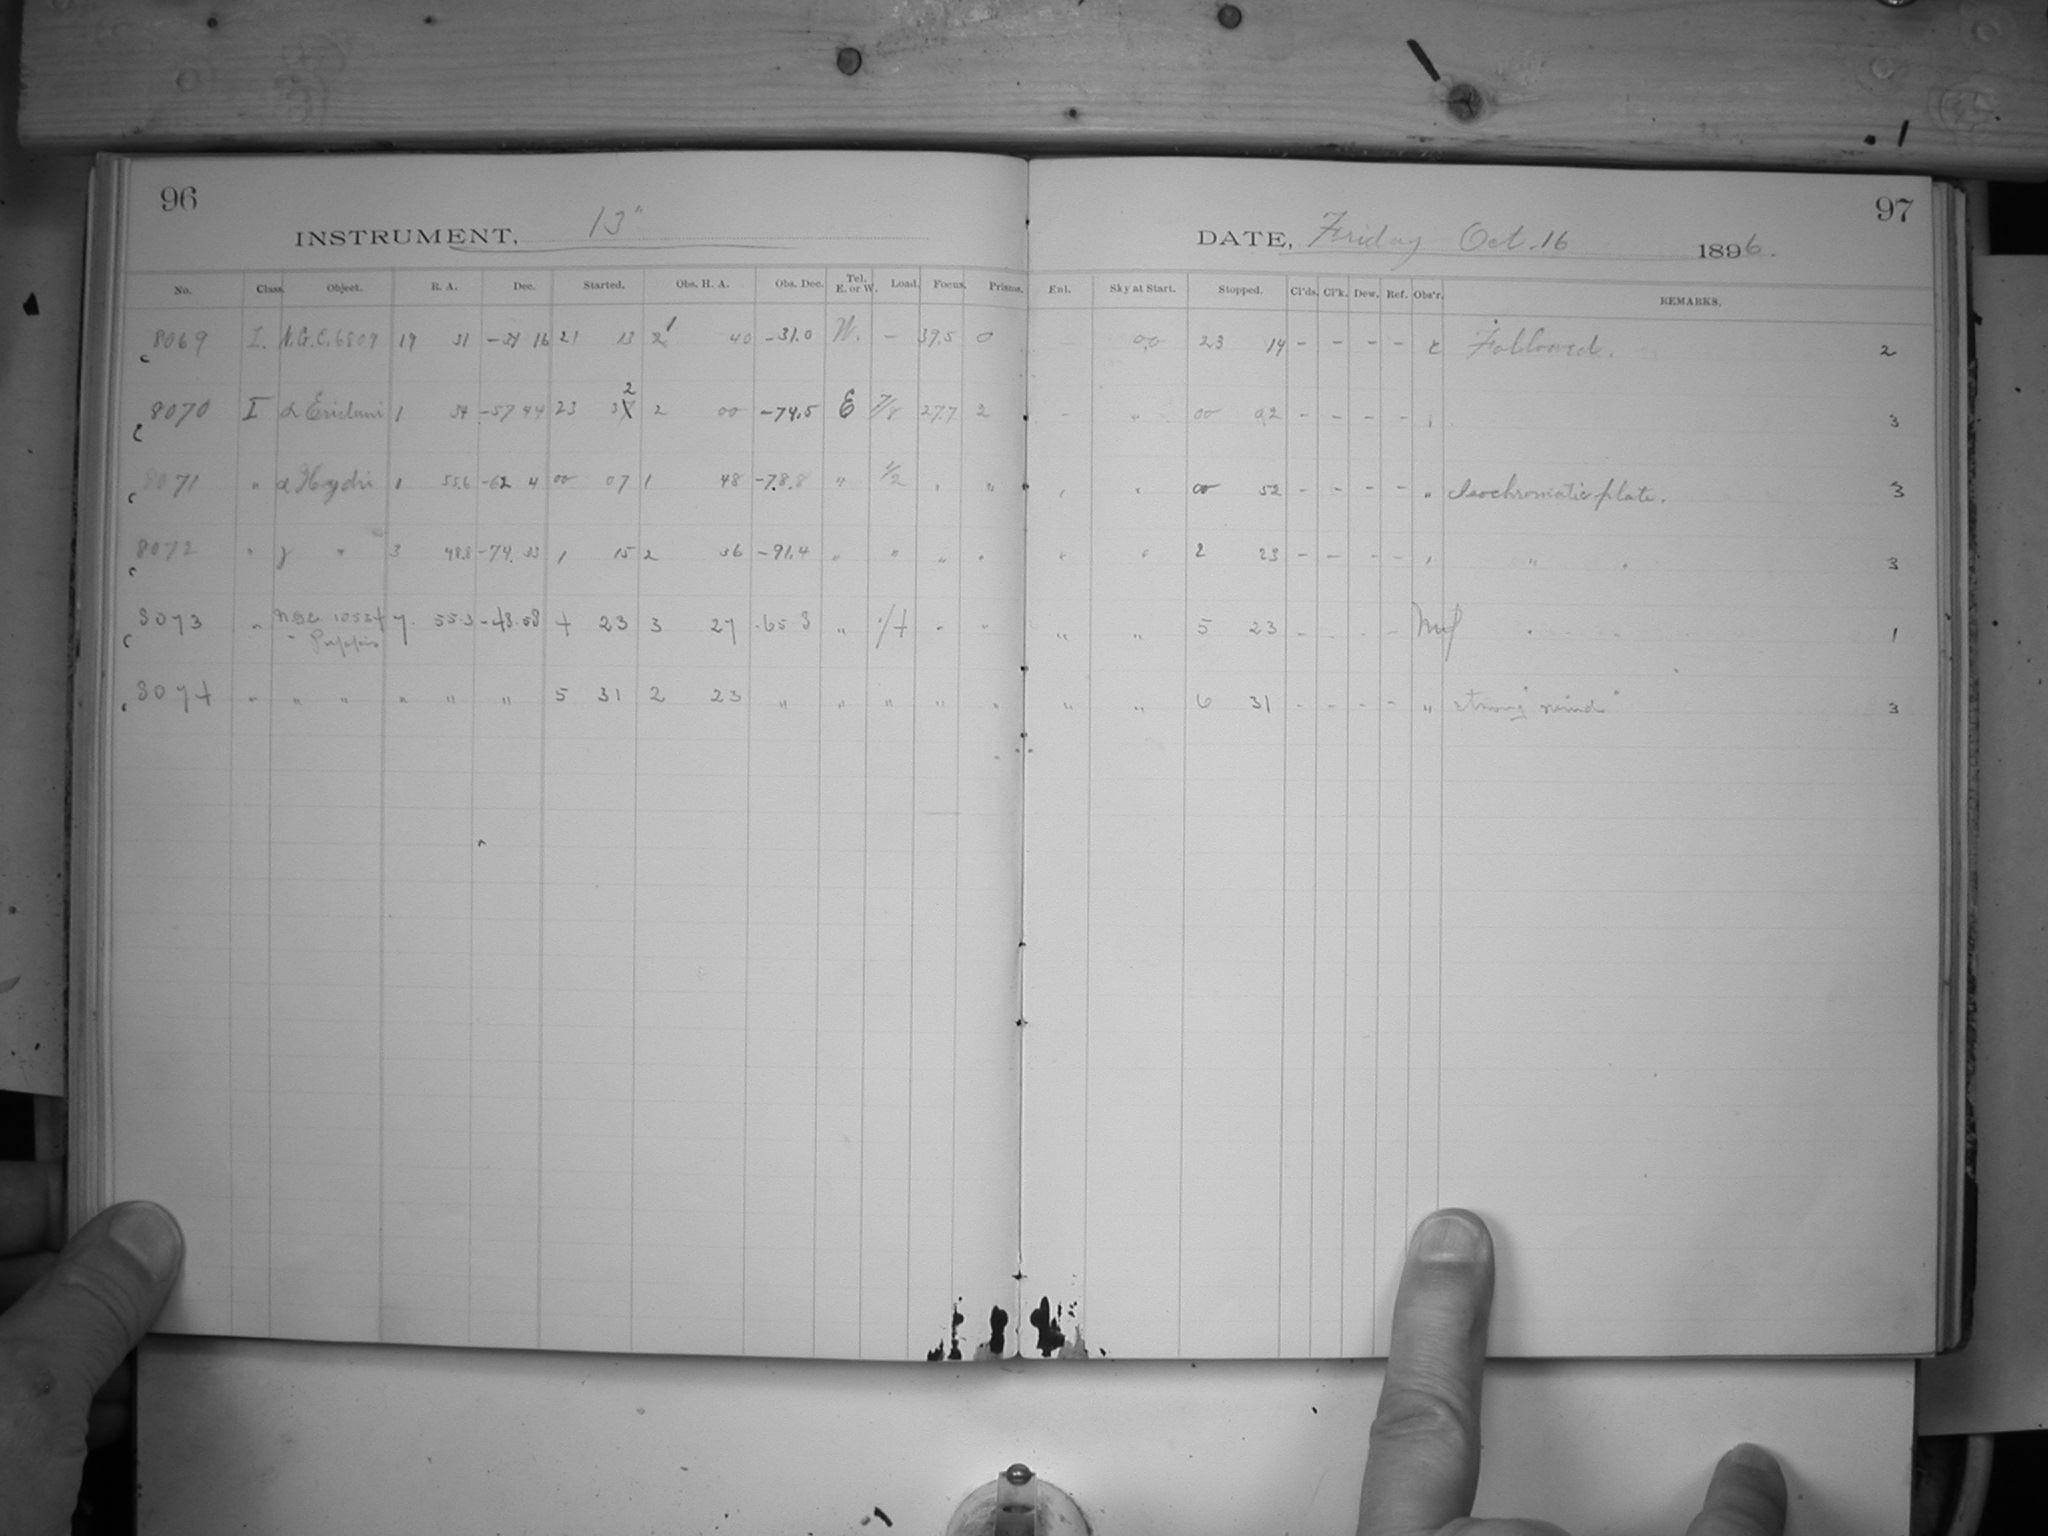 96
INSTRUMENT, 13"
No. Class. Object. R. A. Dec. Started. Obs. H. A. Obs. Dec. Tel. E. or W. Load. Focus. Prisms.
8069 I. N.G.C. 6809 19 31 -31 16 21 13 1 40 -31.0 W. - 39.5 0
8070 I α Eridani 1 34 -57 44 23 32 2 00 -74.5 E 7/8 27.7 2
8071 " α Hydri 1 55.6 -62 4 00 07 1 48 -78.8 " 1/2 " "
8072 " γ " 3 48.8 -74.33 1 15 2 36 -91.4 " " " "
8073 " NGC 10534 7 55.3 -48.58 4 23 3 27 -65 8 " 1/4 " "
" Puppis
8074 " " " " " " 5 31 2 23 " " " " "
97
DATE, Friday Oct. 16 1896.
Enl. Sky at Start. Stopped. Cl'ds. Cl'k. Dew. Ref. Obs'r. REMARKS.
- 00 23 14 - - - - Followed. 2
- " 00 02 - - - - " 3
" " 00 52 - - - - " Isochromatic plate. 3
" " 2 23 - - - - " " " 3
" " 5 23 - - - - " " 1
" " 6 31 - - - - " strong wind 3